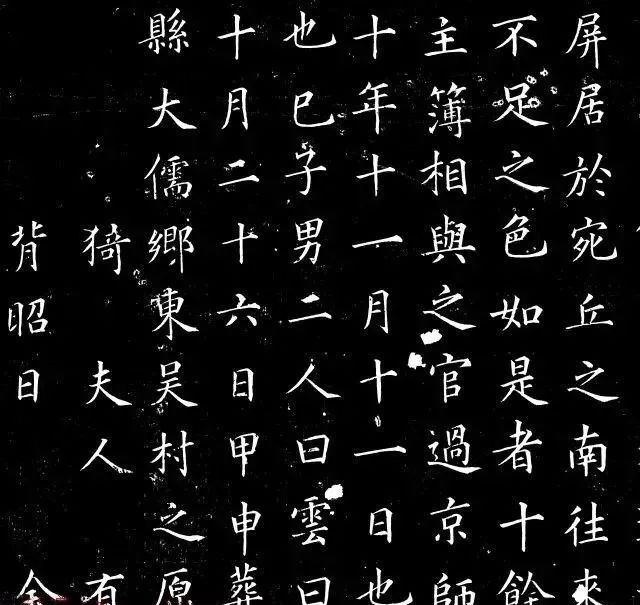 屏居於宛丘之南往來
不足之色如是者十餘
主簿相與之官過京師
十年十一月十一日也
也巳子男二人曰雲曰
十月二十六日甲申葬
縣大儒鄉東吳村之原
猗　夫人　有
背昭日